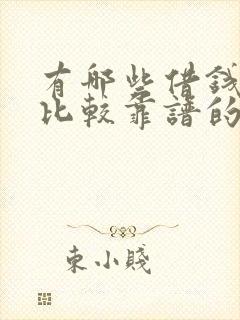 有哪些借錢
比較靠譜的
東小賤